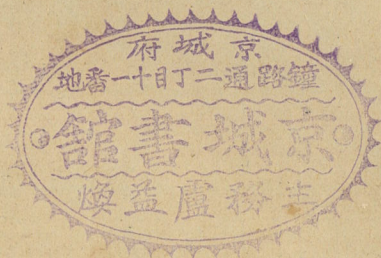 府城京
地番一十目丁二通路鐘
館書城京
煥益盧務主